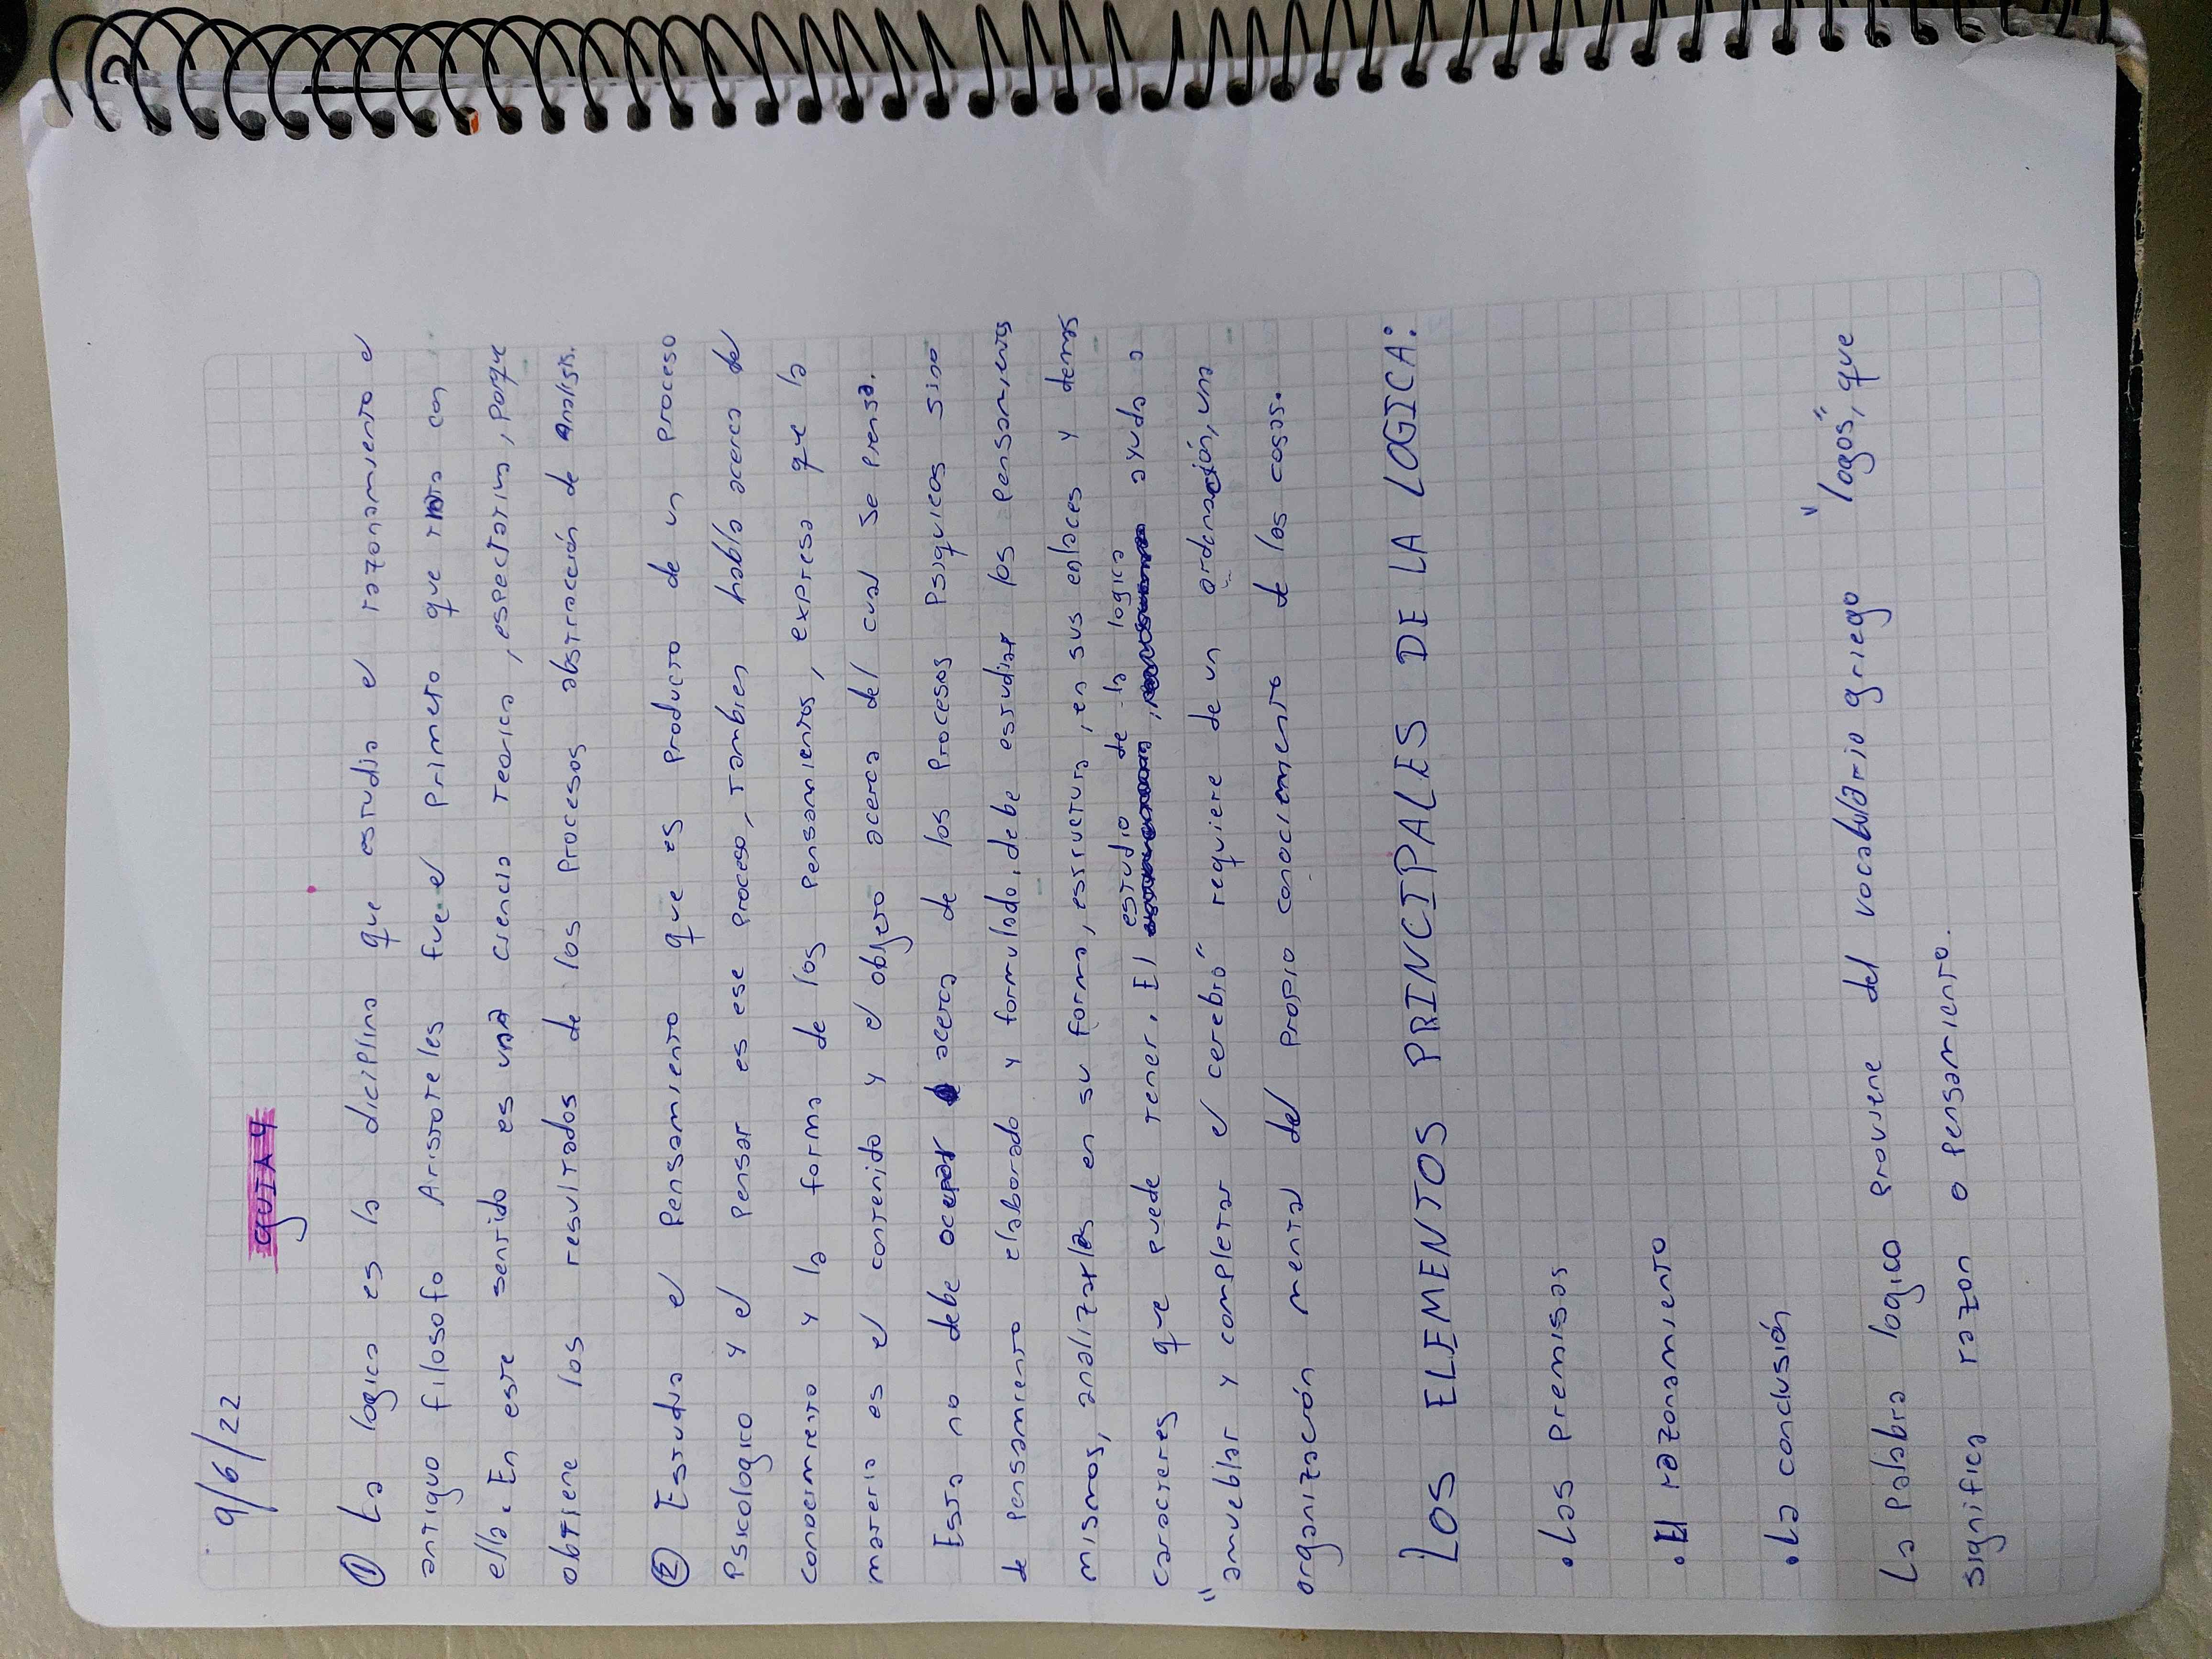 9/6/22
GUIA 4
① La logica es la diciplina que estudia el razonamiento el
antiguo filosofo Aristoteles fue el primero que trato con
ella. En este sentido es una ciencia teorica, espectativa, porque
obtiene los resultados de los procesos abstracción de analisis.
② Estudia el pensamiento que es producto de un proceso
Psicologico y el pensar es ese proceso, tambien habla acerca del
conocimiento y la forma de los pensamientos, expresa que la
materia es el contenido y el objeto acerca del cual se piensa.
Esta no debe ocupar acerca de los procesos Psiquicos sino
de pensamiento elaborado y formulado, debe estudiar los pensamientos
mismos, analizarlos en su forma, estructura, en sus enlaces y demas
caracteres que puede tener. El estudio de la logica ayuda a
"amueblar y completar el cerebro" requiere de un ordenación, una
organización mental del propio conocimiento de las cosas.
LOS ELEMENTOS PRINCIPALES DE LA LOGICA:
• Las premisas
• El razonamiento
• La conclusión
La palabra logica proviene del vocabulario griego "logos", que
significa razon o pensamiento.